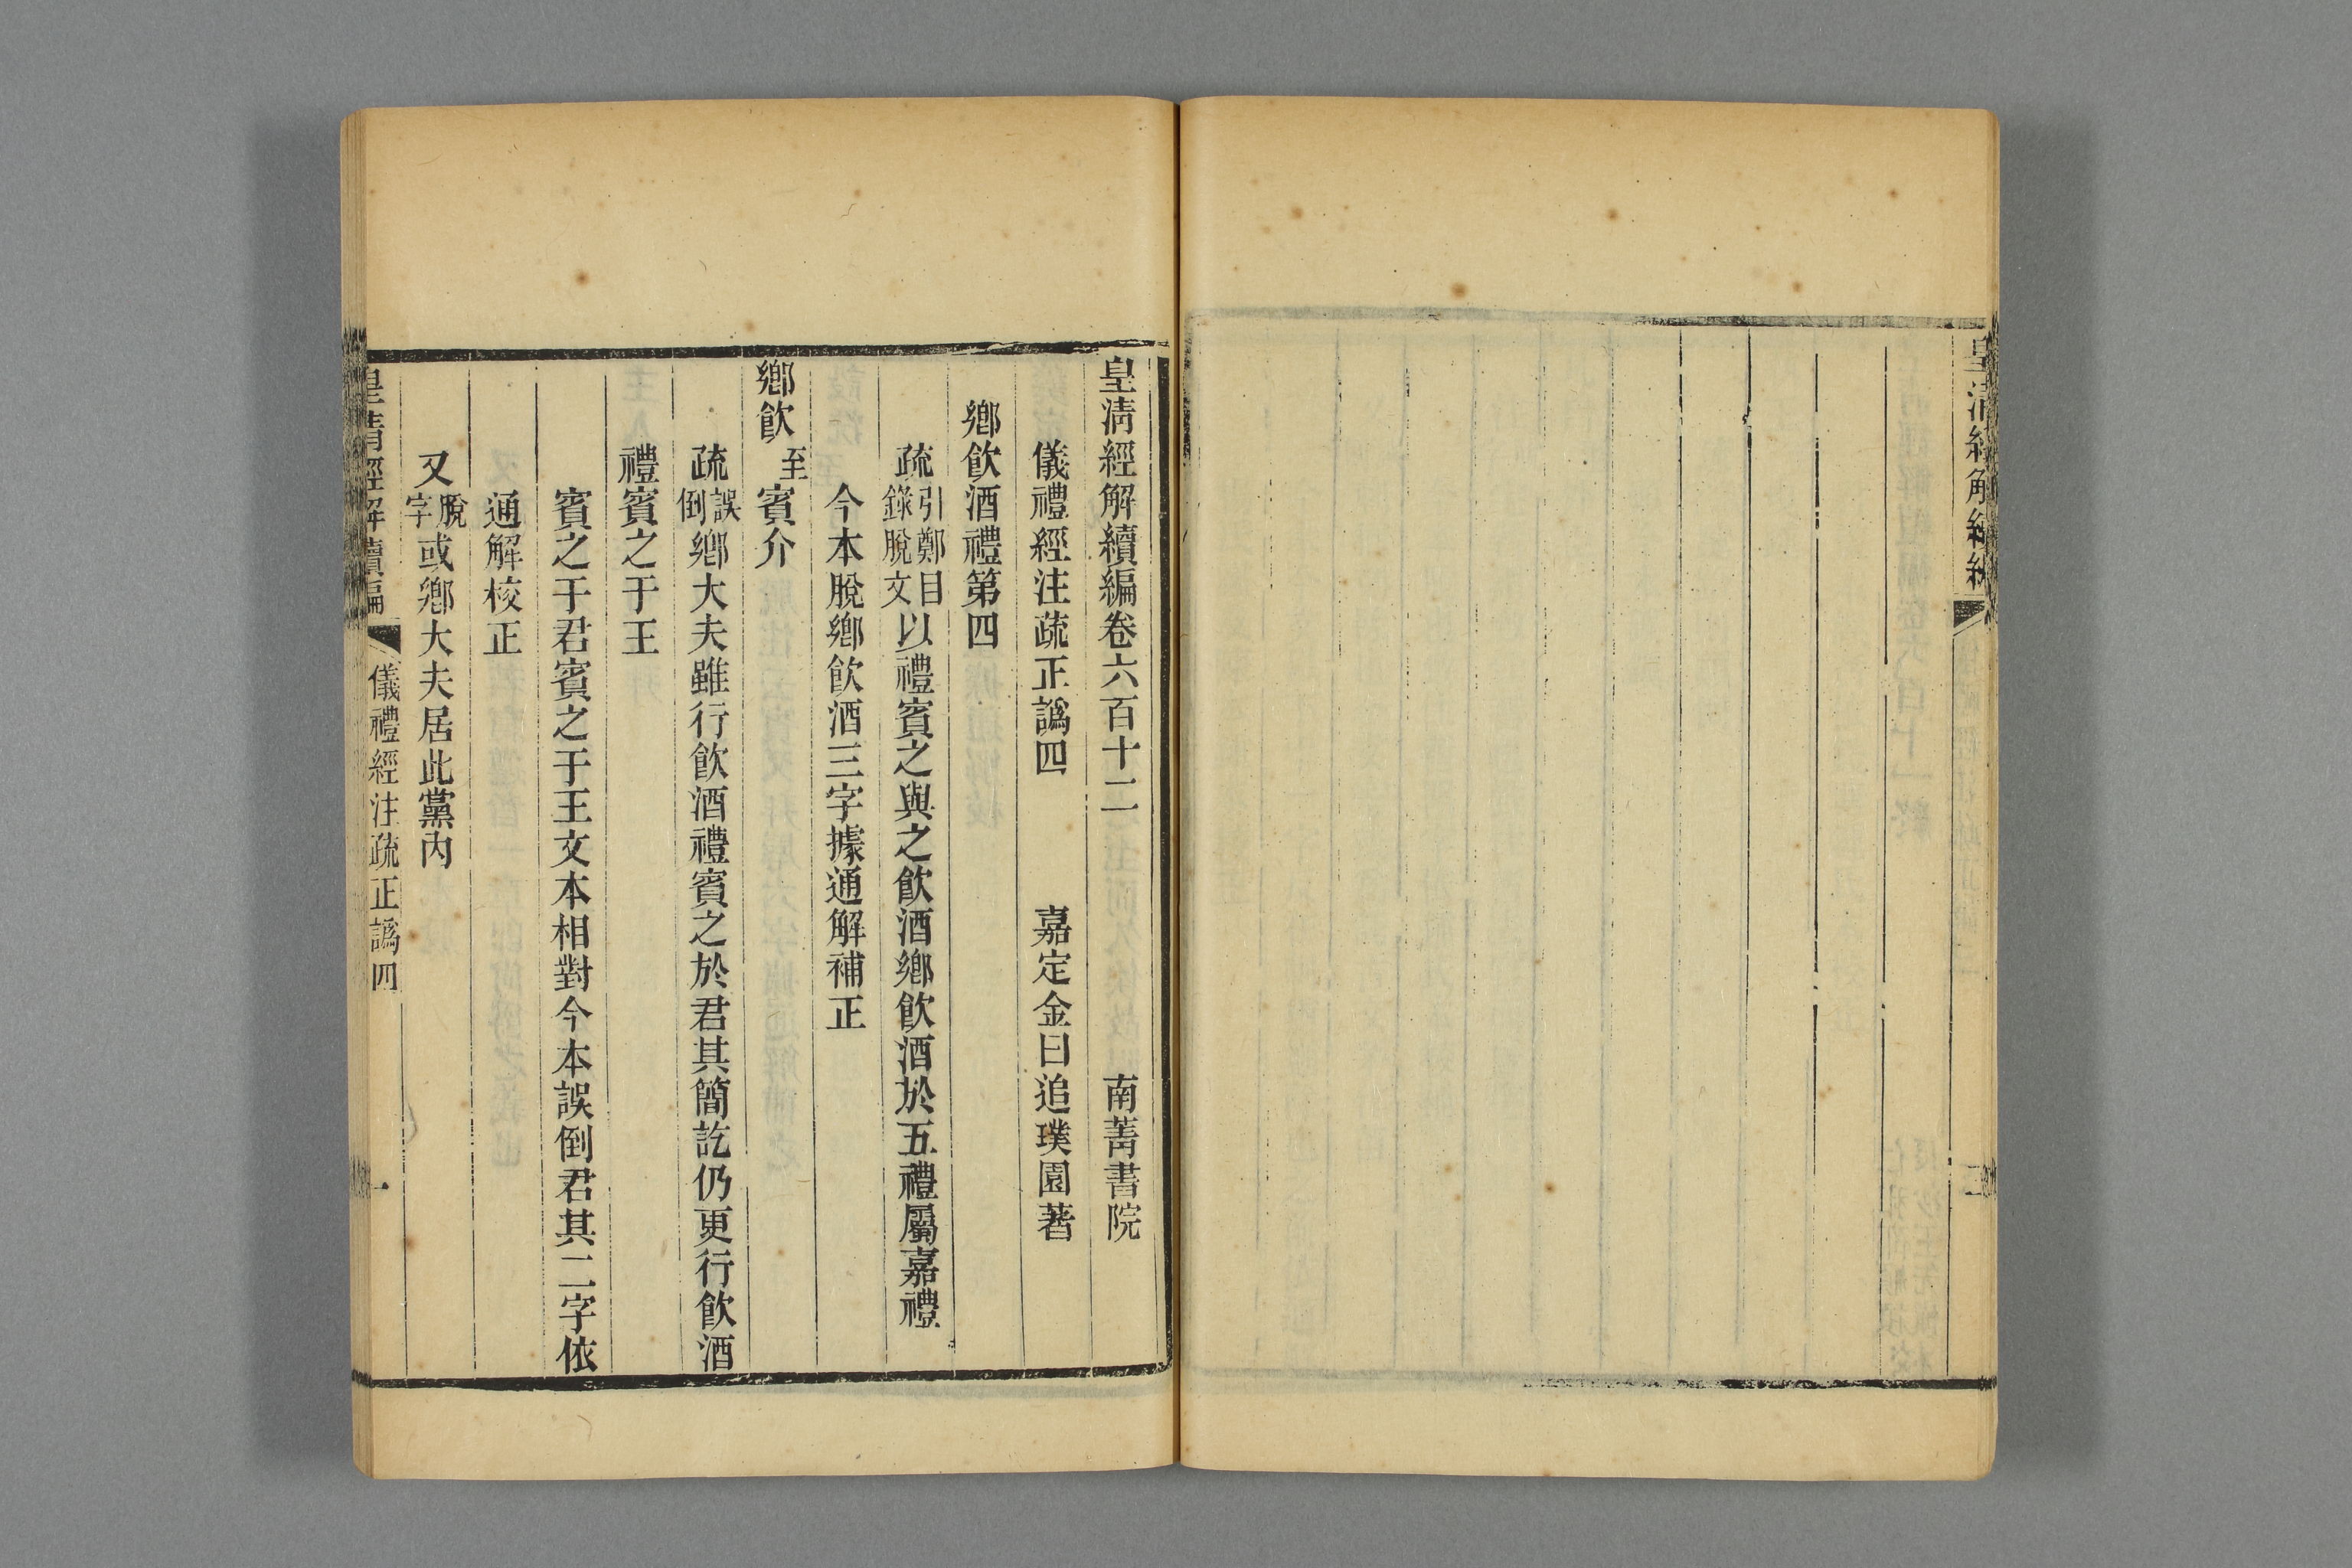 皇清經解續編
二
皇清經解續編卷六百十二 南菁書院
儀禮經注疏正譌四 嘉定金曰追璞園著
鄉飲酒禮第四
疏引鄭目錄脫文以禮賓之與之飲酒鄉飲酒於五禮屬嘉禮
今本脫鄉飲酒三字據通解補正
鄉飲至賓介
疏誤倒鄉大夫雖行飲酒禮賓之於君其簡訖仍更行飲酒
禮賓之于王
賓之于君賓之于王文本相對今本誤倒君其二字依
通解校正
又脫字或鄉大夫居此黨內
皇清經解續編 儀禮經注疏正譌四 一